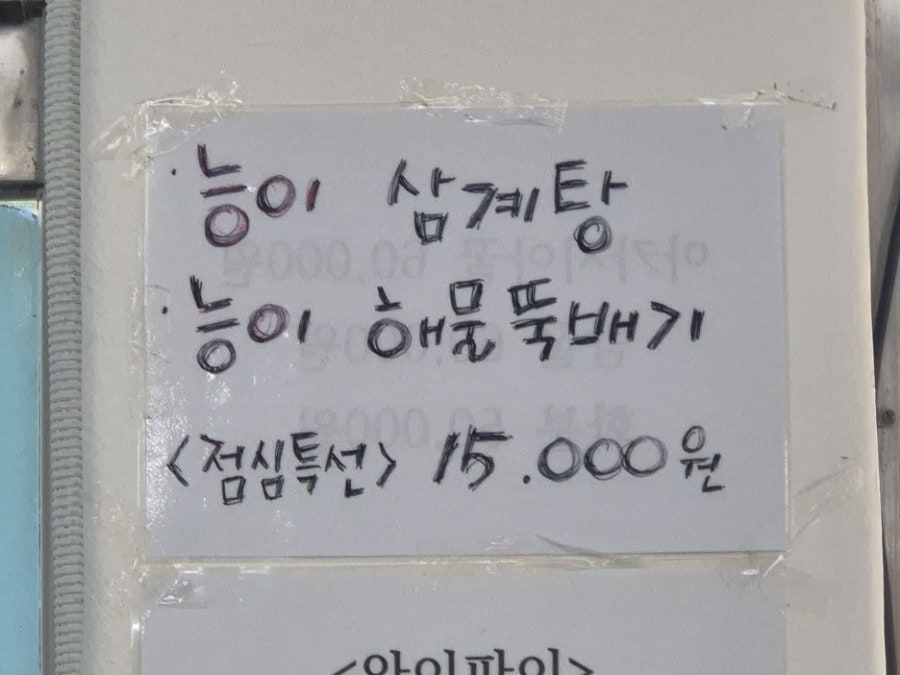 · 능이 삼계탕
· 능이 해물뚝배기
<점심특선> 15.000원
<와이파이>